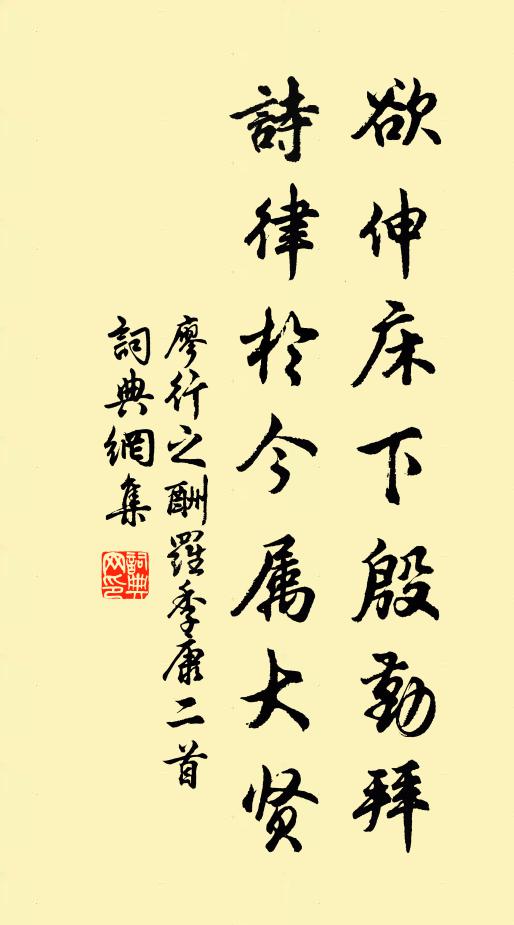 欲伸床下殷勤拜
詩律於今属大贤
廖行之酬羅季康二首
詞典網集
詞典网印